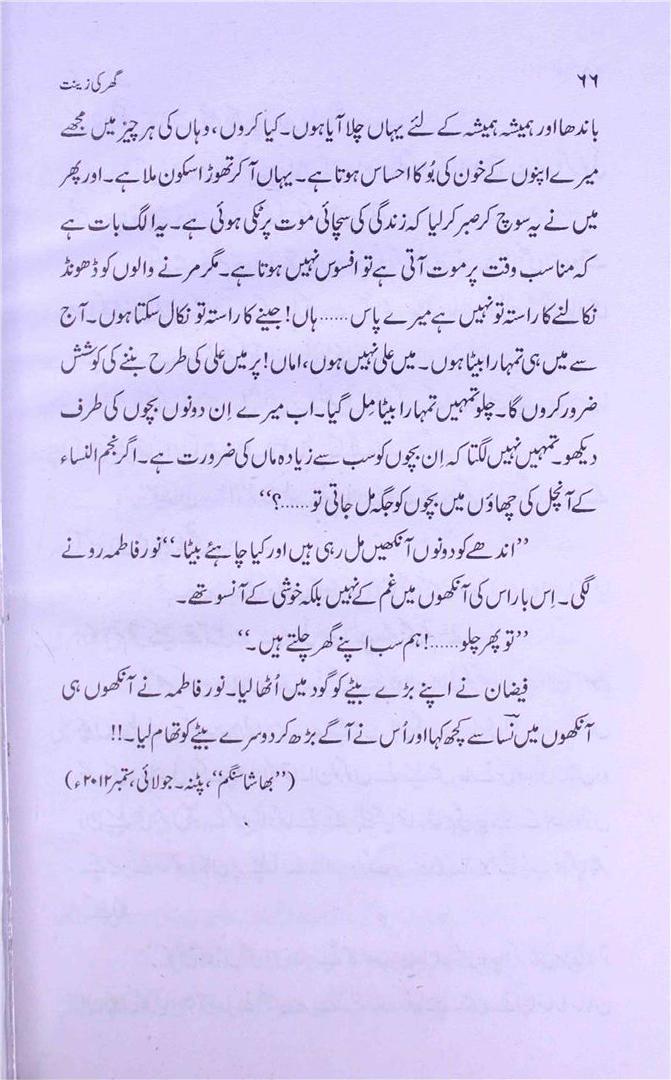 ۶۶ گھر کی زینت
باندھا اور ہمیشہ ہمیشہ کے لئے یہاں چلا آیا ہوں۔ کیا کروں، وہاں کی ہر چیز میں مجھے
میرے اپنوں کے خون کی بُو کا احساس ہوتا ہے۔ یہاں آ کر تھوڑا سکون ملا ہے۔ اور پھر
میں نے یہ سوچ کر صبر کر لیا کہ زندگی کی سچائی موت پر ٹکی ہوئی ہے۔ یہ الگ بات ہے
کہ مناسب وقت پر موت آتی ہے تو افسوس نہیں ہوتا ہے۔ مگر مرنے والوں کو ڈھونڈ
نکالنے کا راستہ تو نہیں ہے میرے پاس ...... ہاں! جینے کا راستہ تو نکال سکتا ہوں۔ آج
سے میں ہی تمہارا بیٹا ہوں۔ میں علی نہیں ہوں، اماں! پر میں علی کی طرح بننے کی کوشش
ضرور کروں گا۔ چلو تمہیں تمہارا بیٹا مِل گیا۔ اب میرے اِن دونوں بچوں کی طرف
دیکھو۔ تمہیں نہیں لگتا کہ اِن بچوں کو سب سے زیادہ ماں کی ضرورت ہے۔ اگر نجم النساء
کے آنچل کی چھاؤں میں بچوں کو جگہ مل جاتی تو ......؟‘‘
’’اندھے کو دونوں آنکھیں مل رہی ہیں اور کیا چاہئے بیٹا۔‘‘ نور فاطمہ رونے
لگی۔ اِس بار اس کی آنکھوں میں غم کے نہیں بلکہ خوشی کے آنسو تھے۔
’’تو پھر چلو ......! ہم سب اپنے گھر چلتے ہیں۔‘‘
فیضان نے اپنے بڑے بیٹے کو گود میں اُٹھا لیا۔ نور فاطمہ نے آنکھوں ہی
آنکھوں میں نسا سے کچھ کہا اور اُس نے آگے بڑھ کر دوسرے بیٹے کو تھام لیا۔!!
(’’بھاشا سنگم‘‘، پٹنہ۔ جولائی، ستمبر ۲۰۱۲ء)